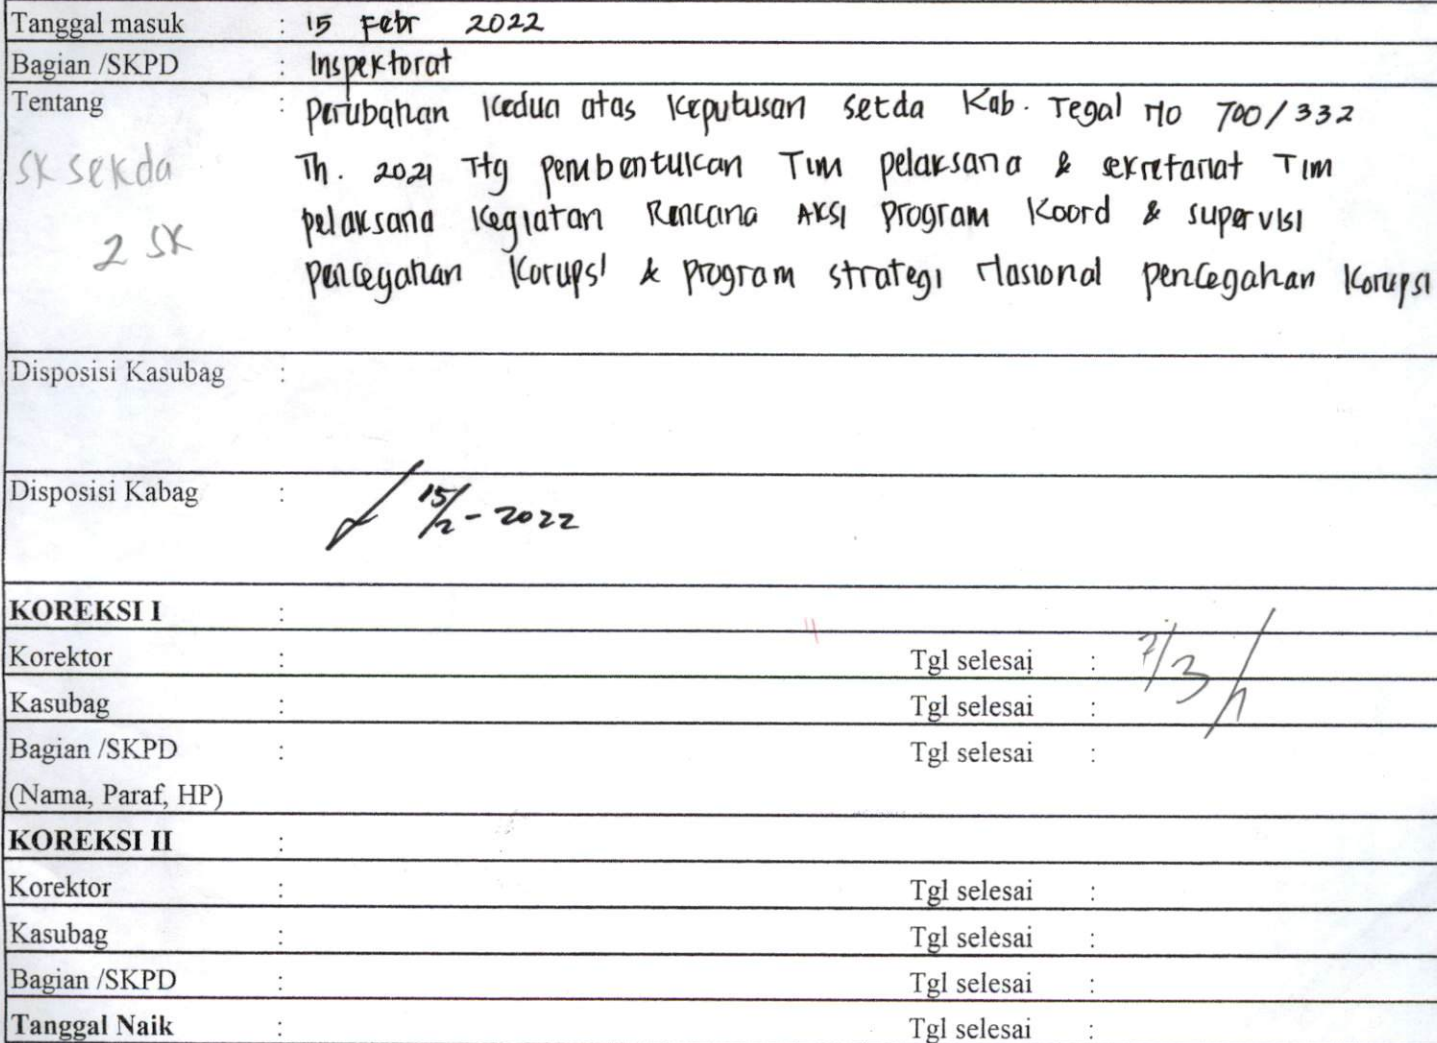 Tanggal masuk : 15 Febr 2022
Bagian /SKPD : Inspektorat
Tentang : Perubahan Kedua atas Keputusan setda Kab. Tegal No 700/332
SK Sekda Th. 2021 Ttg pembentukan Tim pelaksana & sekretariat Tim
2 SK pelaksana Kegiatan Rencana AKSI Program Koord & supervisi
pencegahan Korupsi & program strategi Nasional pencegahan Korupsi
Disposisi Kasubag :
Disposisi Kabag : 15/2 - 2022
KOREKSI I :
Korektor : Tgl selesai : 7/3
Kasubag : Tgl selesai :
Bagian /SKPD : Tgl selesai :
(Nama, Paraf, HP)
KOREKSI II :
Korektor : Tgl selesai :
Kasubag : Tgl selesai :
Bagian /SKPD : Tgl selesai :
Tanggal Naik : Tgl selesai :